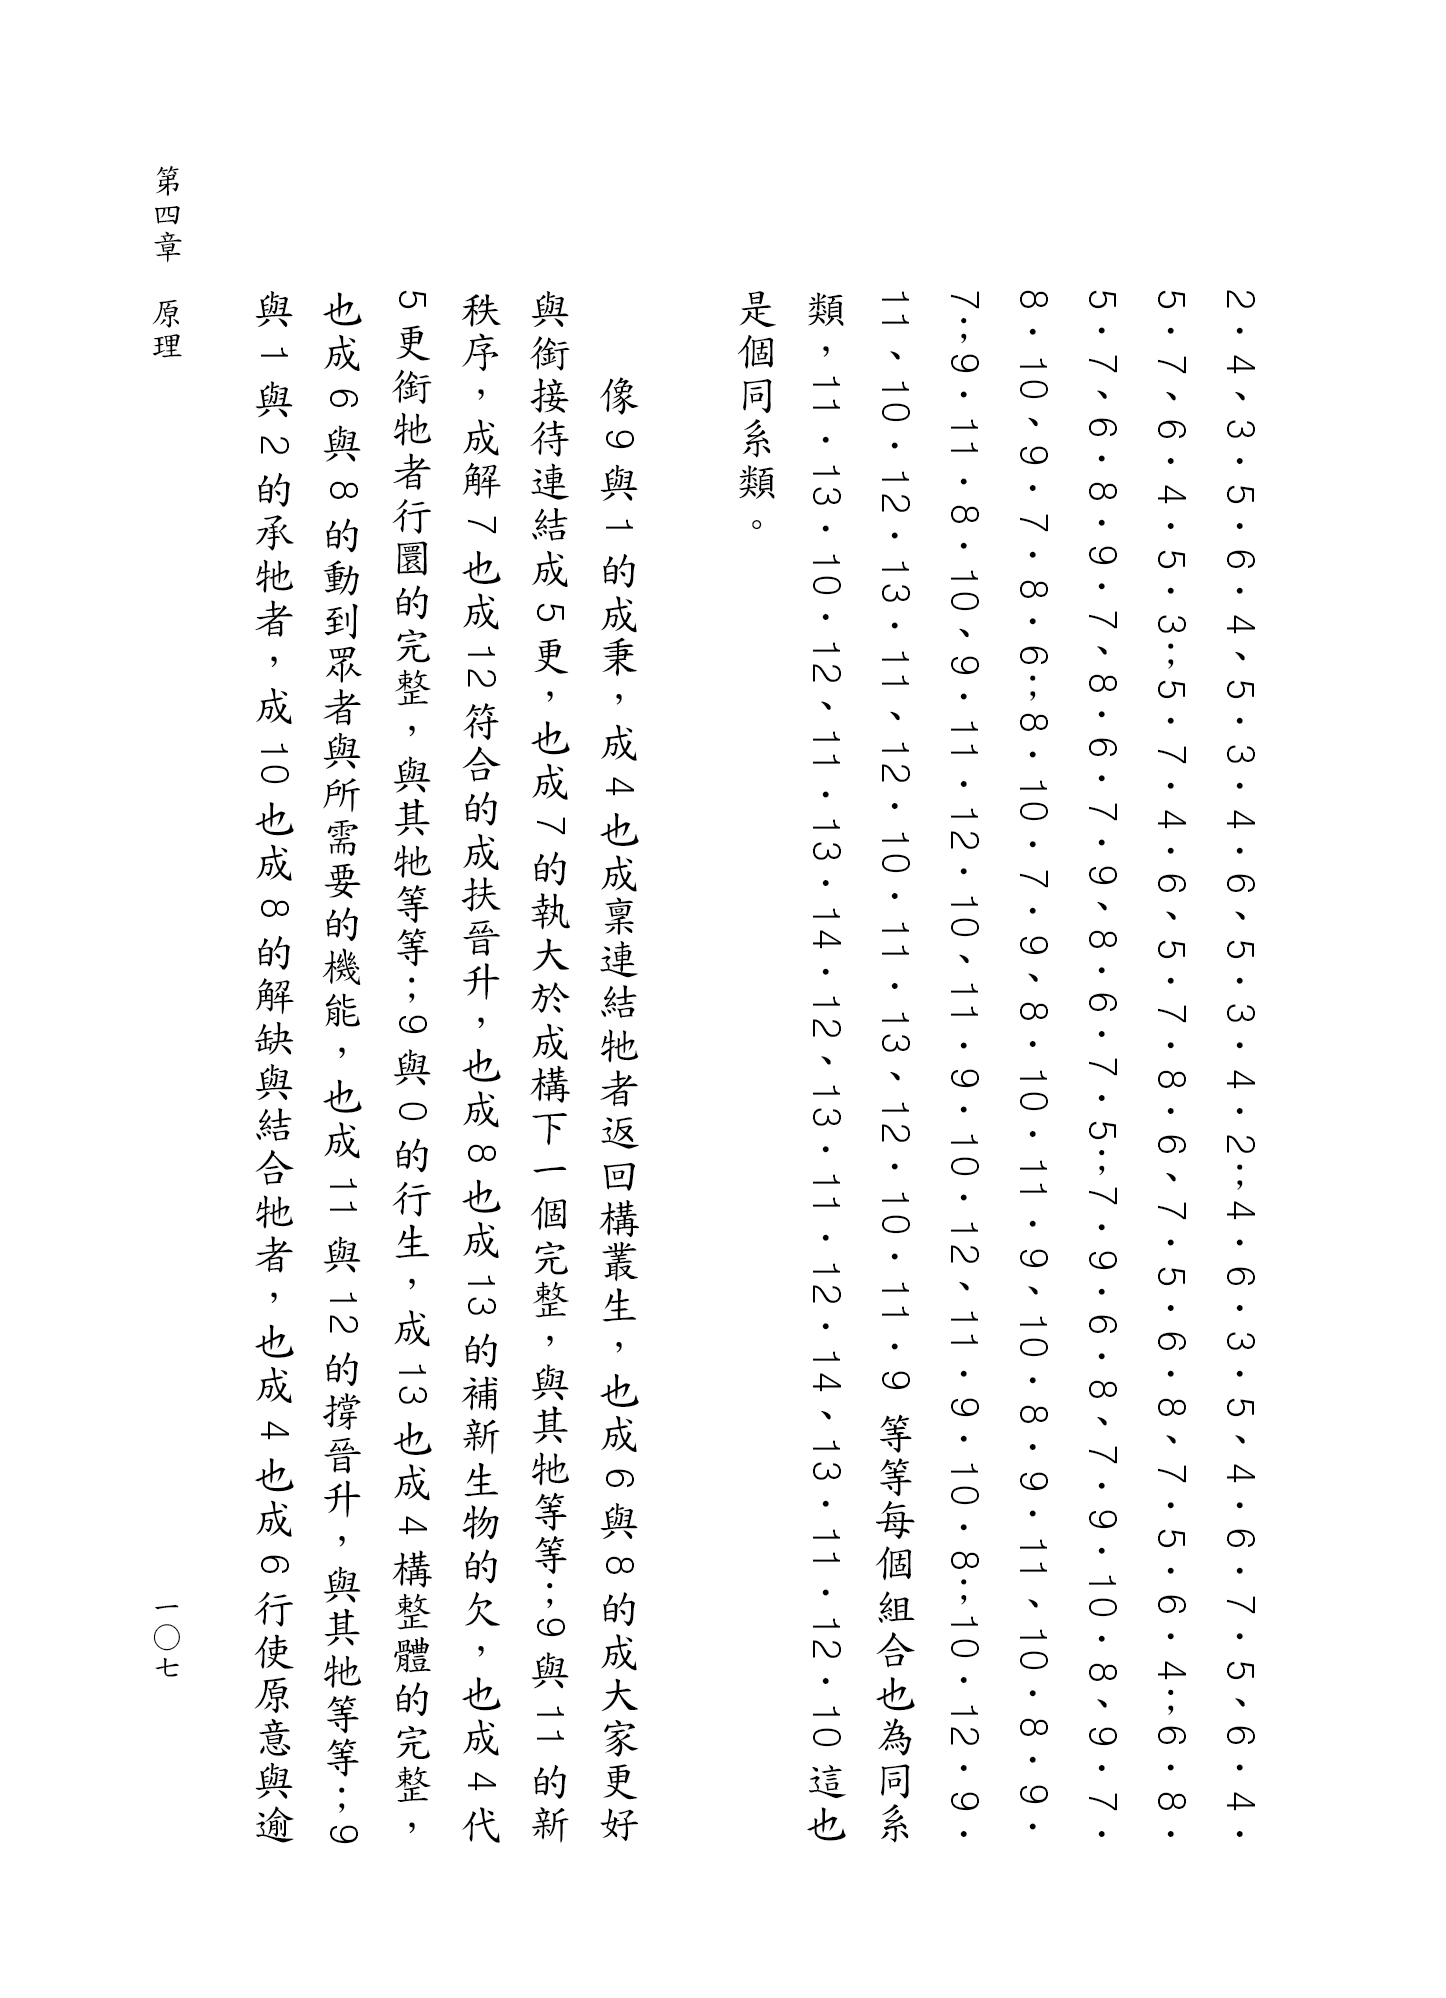 2．4、3．5．6．4、5．3．4．6、5．3．4．2；4．6．3．5、4．6．7．5、6．4．
5．7、6．4．5．3；5．7．4．6、5．7．8．6、7．5．6．8、7．5．6．4；6．8．
5．7、6．8．9．7、8．6．7．9、8．6．7．5；7．9．6．8、7．9．10．8、9．7．
8．10、9．7．8．6；8．10．7．9、8．10．11．9、10．8．9．11、10．8．9．
7；9．11．8．10、9．11．12．10、11．9．10．12、11．9．10．8；10．12．9．
11、10．12．13．11、12．10．11．13、12．10．11．9 等等每個組合也為同系
類，11．13．10．12、11．13．14．12、13．11．12．14、13．11．12．10 這也
是個同系類。
像9與1的成秉，成4也成稟連結牠者返回構叢生，也成6與8的成大家更好
與銜接待連結成5更，也成7的執大於成構下一個完整，與其牠等等；9與11的新
秩序，成解7也成12符合的成扶晉升，也成8也成13的補新生物的欠，也成4代
5更銜牠者行圜的完整，與其牠等等；9與0的行生，成13也成4構整體的完整，
也成6與8的動到眾者與所需要的機能，也成11與12的撐晉升，與其牠等等；9
與1與2的承牠者，成10也成8的解缺與結合牠者，也成4也成6行使原意與逾
第四章　原理
一〇七